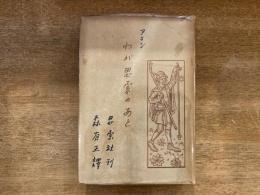 アラン
わが思索のあと
森有正譯
思索社刊